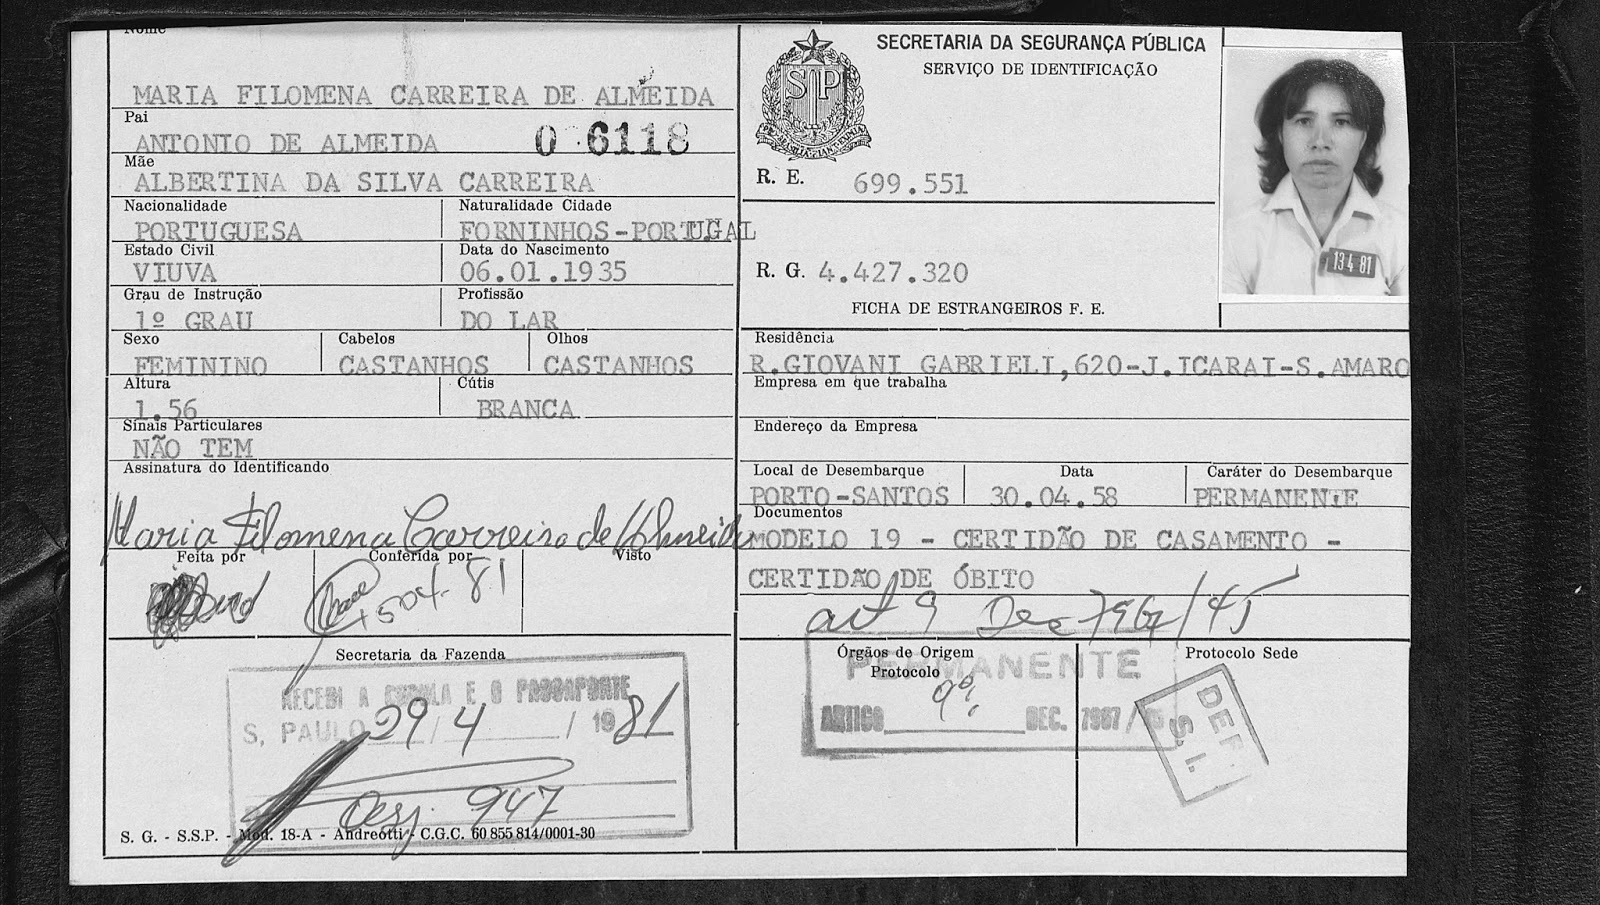 Nome
MARIA FILOMENA CARREIRA DE ALMEIDA
Pai
ANTONIO DE ALMEIDA 0 6118
Mãe
ALBERTINA DA SILVA CARREIRA
Nacionalidade Naturalidade Cidade
PORTUGUESA FORNINHOS-PORTUGAL
Estado Civil Data do Nascimento
VIUVA 06.01.1935
Grau de Instrução Profissão
1º GRAU DO LAR
Sexo Cabelos Olhos
FEMININO CASTANHOS CASTANHOS
Altura Cútis
1.56 BRANCA
Sinais Particulares
NÃO TEM
Assinatura do Identificando
Maria Filomena Carreira de Almeida
Feita por Conferida por Visto
04-81
Secretaria da Fazenda
RECEBI A CEDULA E O PASSAPORTE
S. PAULO 29 / 4 / 1981
947
S. G. - S.S.P. - Mod. 18-A - Andreotti - C.G.C. 60 855 814/0001-30
SECRETARIA DA SEGURANÇA PÚBLICA
SERVIÇO DE IDENTIFICAÇÃO
SP
R. E. 699.551
R. G. 4.427.320
FICHA DE ESTRANGEIROS F. E.
134 81
Residência
R.GIOVANI GABRIELI,620-J.ICARAI-S.AMARO
Empresa em que trabalha
Endereço da Empresa
Local de Desembarque Data Caráter do Desembarque
PORTO-SANTOS 30.04.58 PERMANENTE
Documentos
MODELO 19 - CERTIDÃO DE CASAMENTO -
CERTIDÃO DE ÓBITO
art 9 Dec 7967/45
Órgãos de Origem Protocolo Sede
PERMANENTE
Protocolo
ARTIGO 9º DEC. 7967 /
S. I.